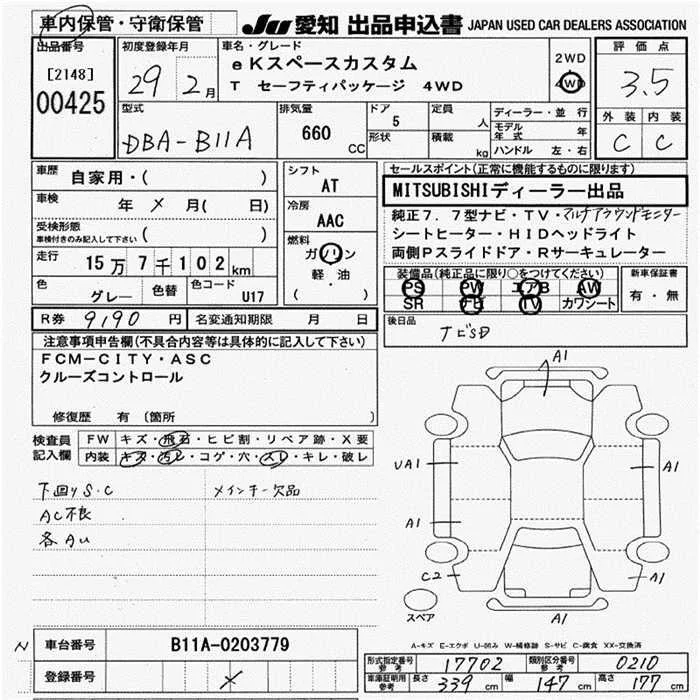 車内保管・守衛保管
JU 愛知 出品申込書 JAPAN USED CAR DEALERS ASSOCIATION
出品番号
[2148]
00425
初度登録年月
29 2月
車名・グレード
eKスペースカスタム
T セーフティパッケージ 4WD
2WD
4WD
評価点
3.5
外装 内装
C C
型式
DBA-B11A
排気量
660 CC
ドア
5
形状
定員 人
積載 kg
ディーラー・並行
モデル年式 年
ハンドル 左・右
車歴 自家用・( )
車検 年 メ 月( 日)
受検形態
車検付きのみ記入して下さい ( )
走行 15万7千102km
色 グレー 色替 色コード U17
シフト
AT
冷房
AAC
燃料
ガソリン
軽・油
( )
セールスポイント(正常に機能するものに限ります)
MITSUBISHIディーラー出品
純正7.7型ナビ・TV・マルチアラウンドモニター
シートヒーター・HIDヘッドライト
両側Pスライドドア・Rサーキュレーター
装備品(純正品に限り○をつけてください)
PS PW エアB AW
SR ナビ TV カワシート
新車保証書
有・無
後日品
ナビSD
R券 9190 円 名変通知期限 月 日
注意事項申告欄(不具合内容等は具体的に記入して下さい)
FCM-CITY・ASC
クルーズコントロール
修復歴 有 〔箇所 〕
検査員記入欄
FW キズ・飛石・ヒビ割・リペア跡・X要
内装 キズ・汚レ・コゲ・穴・スレ・キレ・破レ
下回りS・C メインキー欠品
AC不良
各AU
A1
UA1 A1
A1
C2 A1
スペア
A1
A-キズ E-エクボ U-凹み W-補修跡 S-サビ C-腐食 XX-交換済
N
車台番号 B11A-0203779
登録番号 メ
形式指定番号参考 17702 類別区分番号参考 0210
車庫証明用参考 長さ 339 cm 幅 147 cm 高さ 177 cm